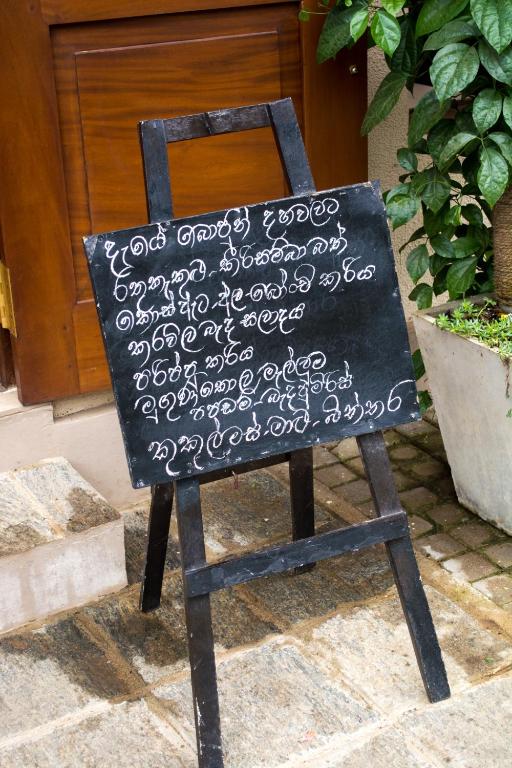 දැයේ බොජුන් දහවලට
රතකැකුළු - කීරිසම්බා බත්
කොස් ඇට - අල - බෝංචි කරිය
කරවිල බැද සලාදය
පරිප්පු කරිය
මුගුණුකොළ මැල්ලුම
පපඩම් - බැදපුමිරිස්
කුකුල්මස් - මාළු - බිත්තර